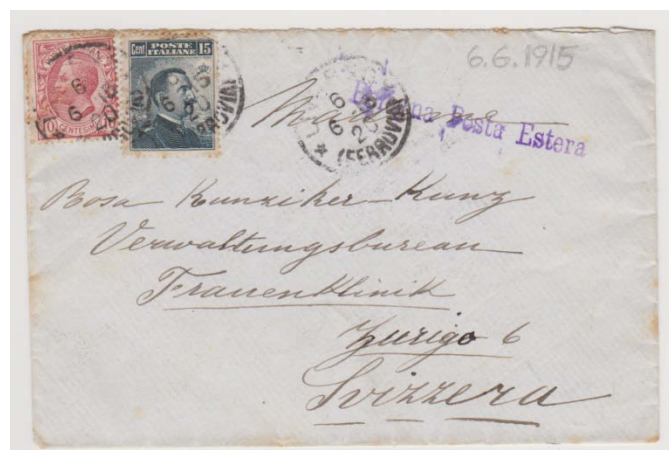 Cent POSTE ITALIANE 15
CENTESIMI
6.6.1915
(FERROVIA)
Posta Estera
Rosa Hunziker-Kunz
Verwaltungsbureau
Frauenklinik
Zurigo 6
Svizzera